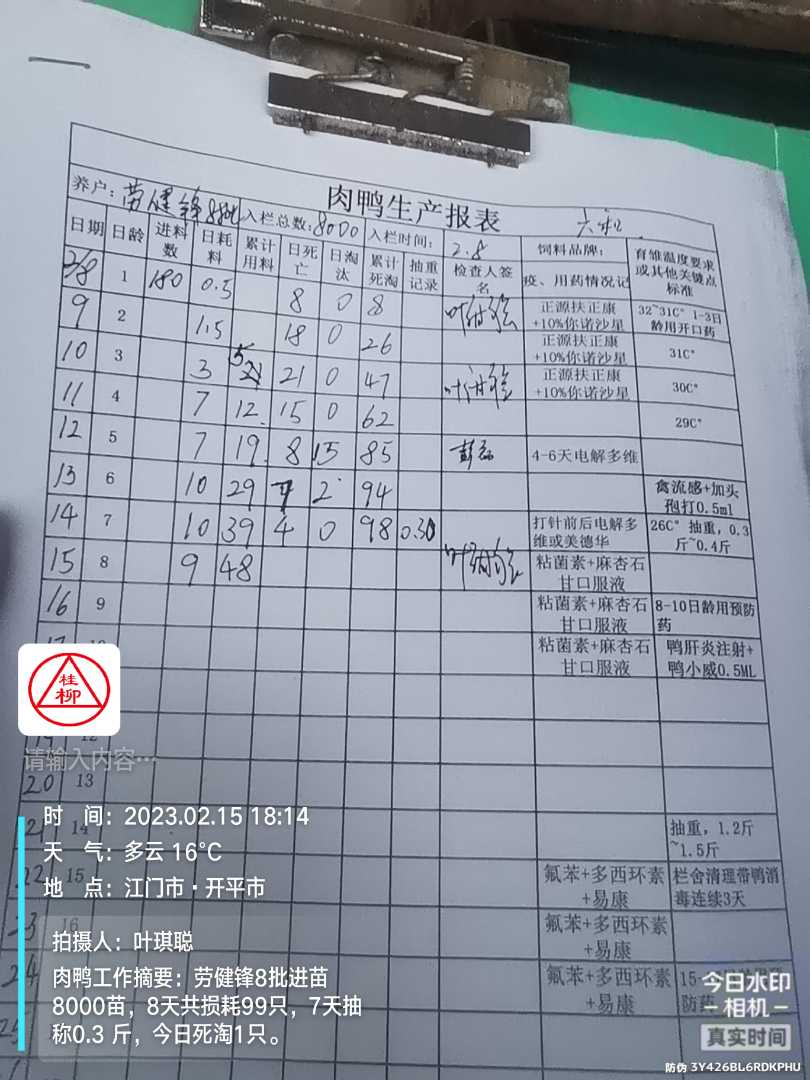 肉鸭生产报表
养户: 劳健锋8批 入栏总数: 8000 入栏时间: 2.8 饲料品牌: 六和
日期 日龄 进料数 日耗料 累计用料 日死亡 日淘汰 累计死淘 抽重记录 检查人签名 疫、用药情况记 育雏温度要求或其他关键点标准
2/8 1 180 0.5 8 0 8 正源扶正康+10%你诺沙星 32~31C° 1-3日龄用开口药
9 2 1.5 18 0 26 正源扶正康+10%你诺沙星 31C°
10 3 3 5 21 0 47 正源扶正康+10%你诺沙星 30C°
11 4 7 12. 15 0 62 29C°
12 5 7 19. 8 15 85 4-6天电解多维
13 6 10 29 2 94 禽流感+加头孢打0.5ml
14 7 10 39 4 0 98 0.30 打针前后电解多维或美德华 26C° 抽重,0.3斤~0.4斤
15 8 9 48 粘菌素+麻杏石甘口服液
16 9 粘菌素+麻杏石甘口服液 8-10日龄用预防药
粘菌素+麻杏石甘口服液 鸭肝炎注射+鸭小威0.5ML
桂
柳
12
请输入内容…
20 13
21 14 抽重,1.2斤~1.5斤
22 15 氟苯+多西环素+易康 栏舍清理带鸭消毒连续3天
23 16 氟苯+多西环素+易康
24 氟苯+多西环素+易康
25
时 间：2023.02.15 18:14
天 气：多云 16°C
地 点：江门市·开平市
拍摄人：叶琪聪
肉鸭工作摘要：劳健锋8批进苗
8000苗，8天共损耗99只，7天抽
称0.3 斤，今日死淘1只。
今日水印
相机
真实时间
防伪 3Y426BL6RDKPHU